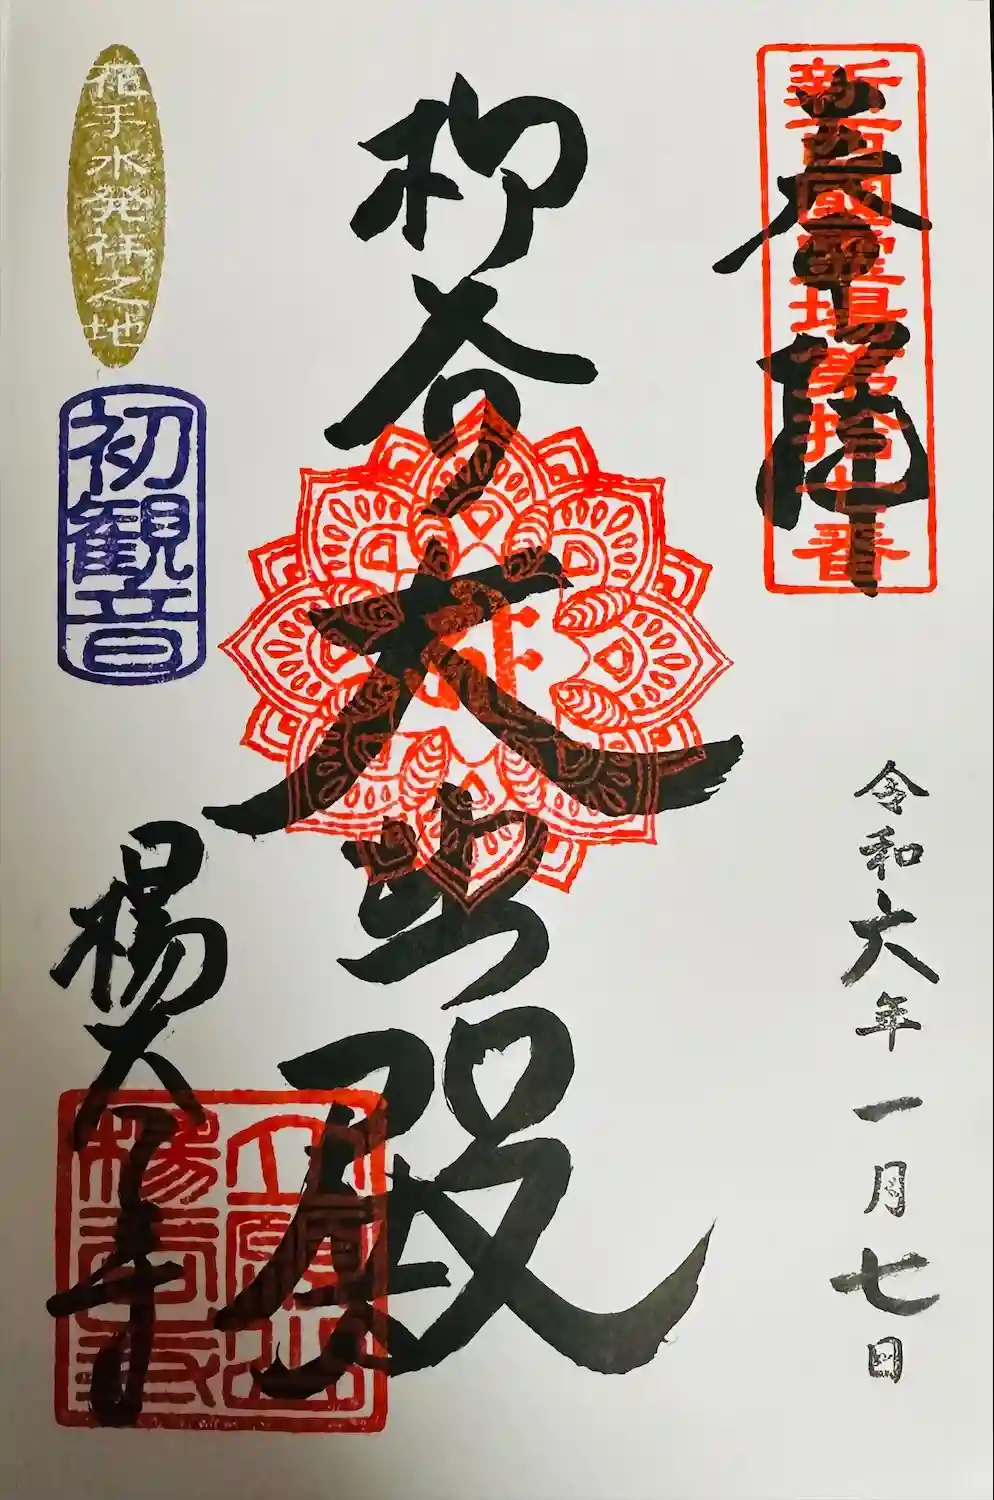 奉拝
新西國霊場第拾七番
令和六年一月七日
柳谷
大悲殿
花手水発祥之地
初観音
楊谷寺
立願山楊谷寺